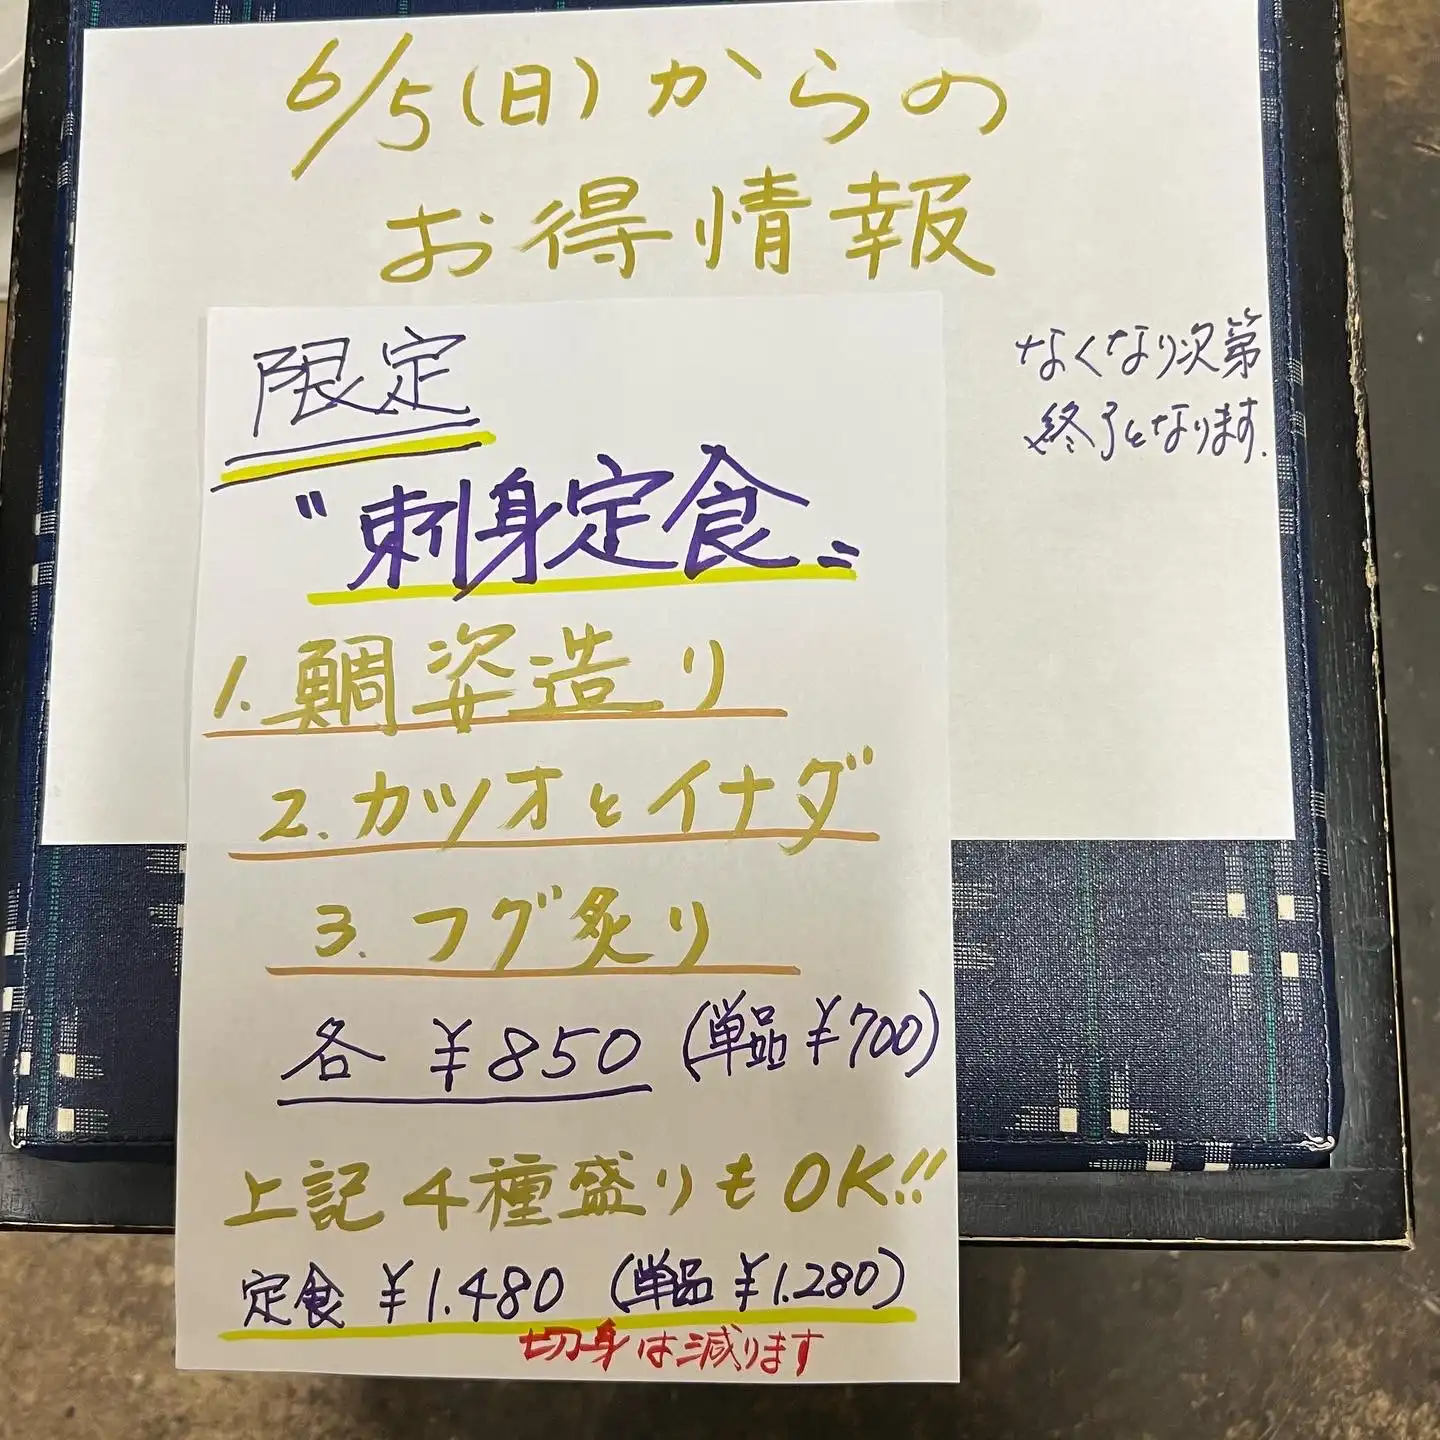 6/5(日)からの
お得情報
なくなり次第
終了となります.
限定
〝刺身定食〟
1.鯛姿造り
2.カツオとイナダ
3.フグ炙り
各 ¥850 (単品¥700)
上記4種盛りもOK!!
定食 ¥1.480 (単品¥1.280)
切身は減ります